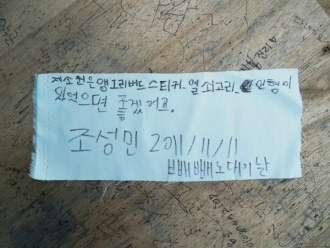 제소원은 앵그리버드 스티커. 열쇠고리. 인형이
있었으면 좋겠어요.
조성민 2011/11/11
빼빼로데이날